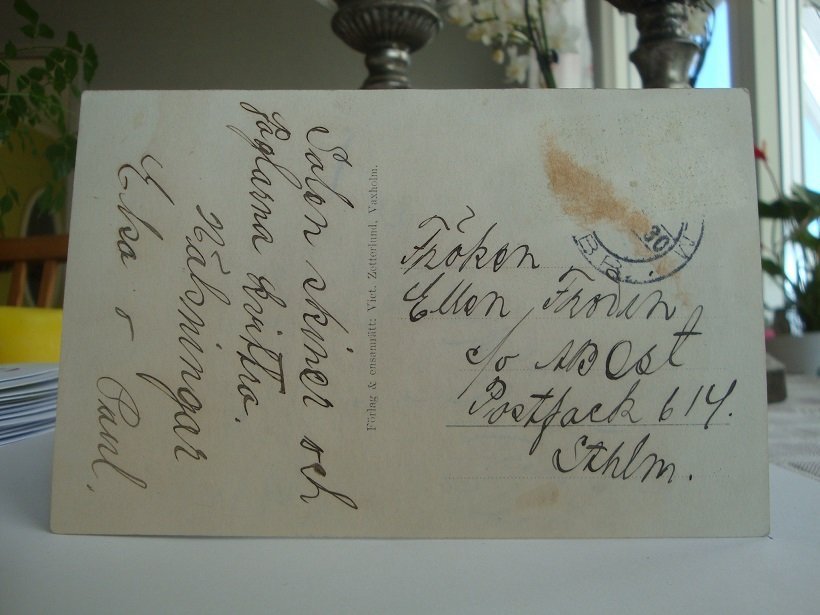 Solen skiner och
foglarna kvittra.
Hälsningar
Elsa o Paul.
Förlag & ensamrätt: Vict. Zetterlund, Vaxholm.
Fröken
Ellen Frodin
c/o AB Ost
Postfack 614.
Sthlm.
30